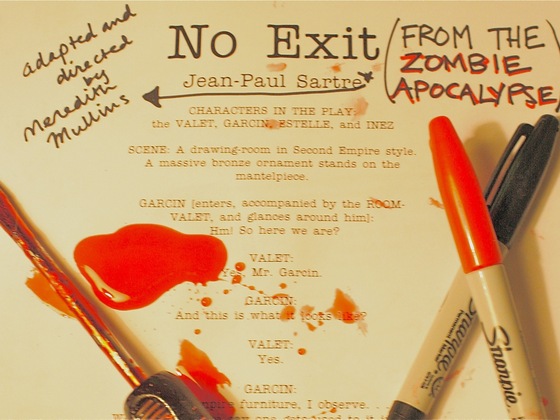 adapted and
directed
by
Meredith
Mullins
No Exit
(FROM THE
ZOMBIE
APOCALYPSE)
Jean-Paul Sartre
CHARACTERS IN THE PLAY:
the VALET, GARCIN, ESTELLE, and INEZ
SCENE: A drawing-room in Second Empire style.
A massive bronze ornament stands on the
mantelpiece.
GARCIN [enters, accompanied by the ROOM-
VALET, and glances around him]:
Hm! So here we are?
VALET:
Yes, Mr. Garcin.
GARCIN:
And this is what it looks like?
VALET:
Yes.
GARCIN:
furniture, I observe.
Sharpie
Sharpie